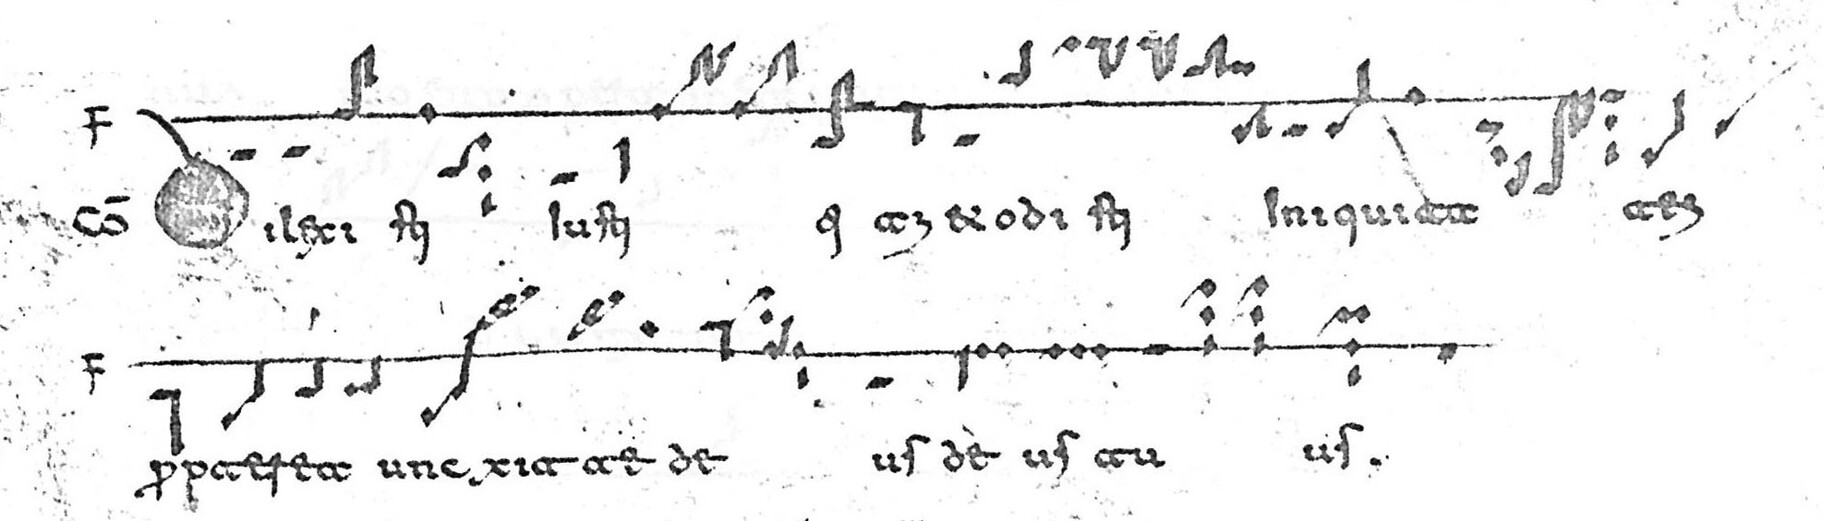 F
Cō Dilexi sti Iusti ti am & odi sti Iniquita tem
F
ꝓpterea unxit te de us de us tu us.